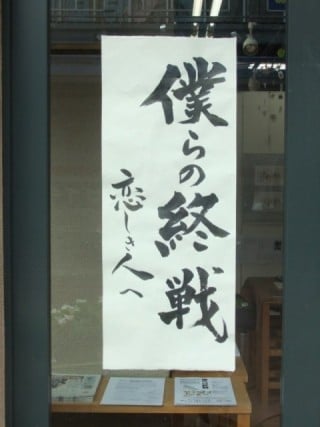 僕らの終戦
恋しき人へ